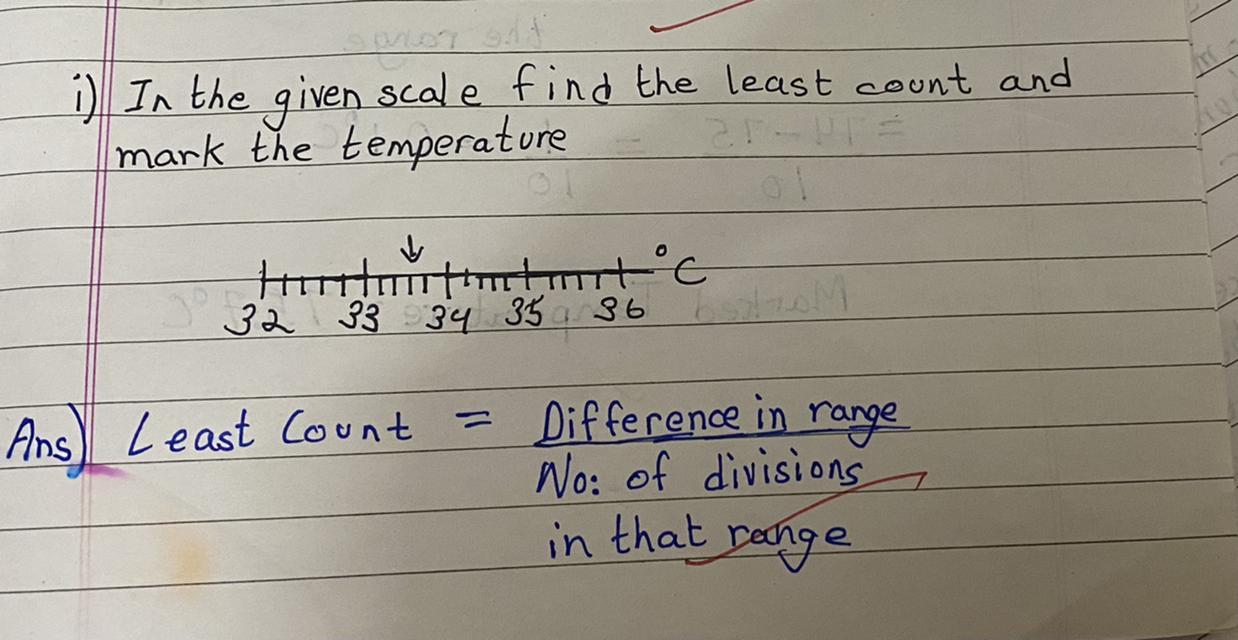 i) In the given scale find the least count and
mark the temperature
°C
32 33 34 35 36
Ans) Least Count = Difference in range
No: of divisions
in that range